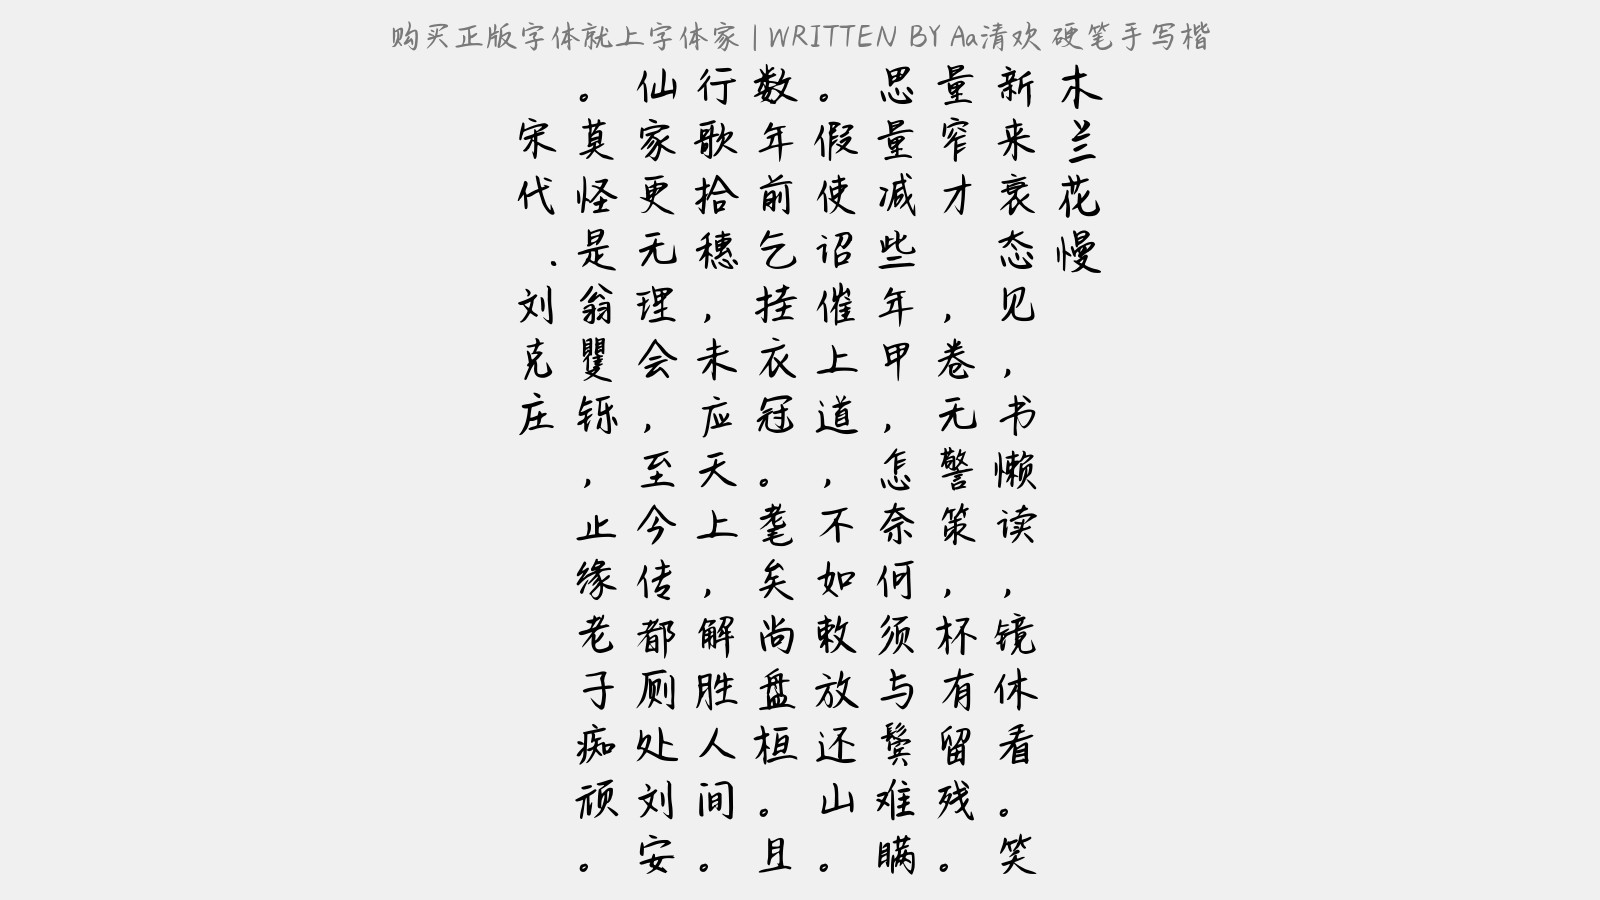 购买正版字体就上字体家 | WRITTEN BY Aa清欢 硬笔手写楷
木兰花慢
新来衰态见，书懒读，镜休看。笑
量窄才，卷无警策，杯有留残。
思量减些年甲，怎奈何须与鬓难瞒
。假使诏催上道，不如敕放还山。
数年前乞挂衣冠。耄矣尚盘桓。且
行歌拾穗，未应天上，解胜人间。
仙家更无理会，至今传都厕处刘安
。莫怪是翁矍铄，止缘老子痴顽。
宋代.刘克庄